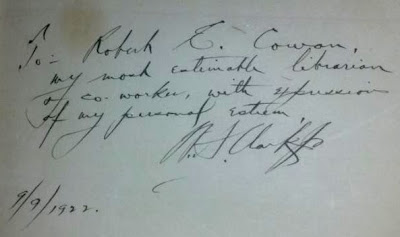 To- Robert E. Cowan,
my most estimable librarian
& co-worker, with expression
of my personal esteem,
W. A. Clark Jr
9/9/1922.